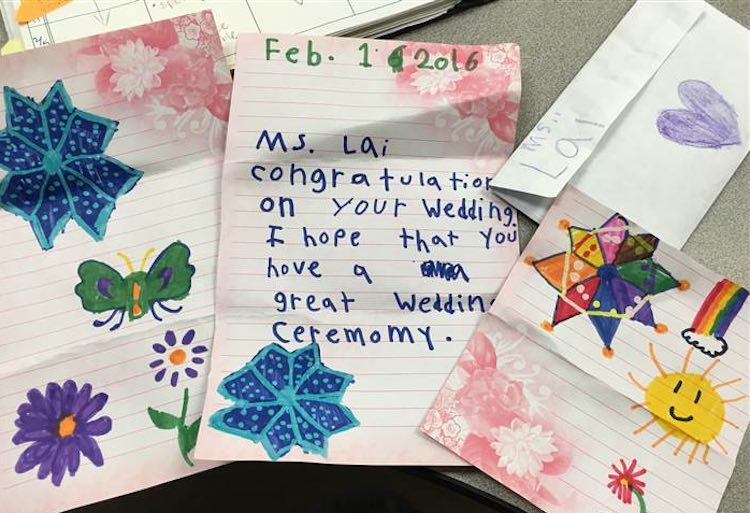 Feb. 16 2016
Ms. Lai
congratulation
on your Wedding.
I hope that you
hove a
great Wedding
Ceremomy.
Ms.
Lai